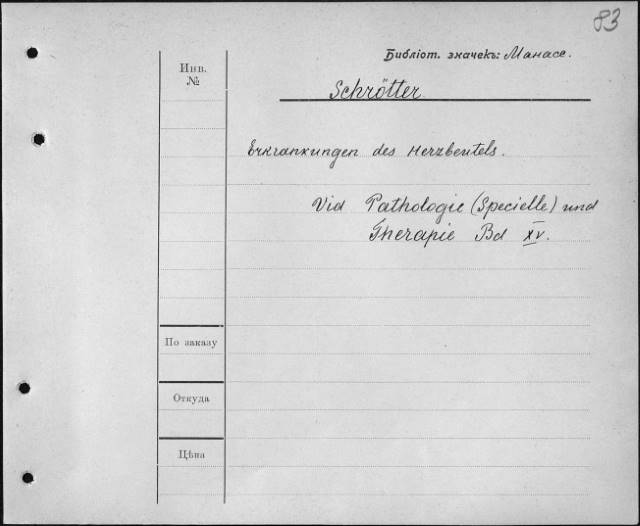 83
Библіот. значекъ: Манасе.
Инв.
№
Schrötter
Erkrankungen des Herzbeutels.
Vid Pathologie (Specielle) und
Therapie Bd XV.
По заказу
Откуда
Цѣна